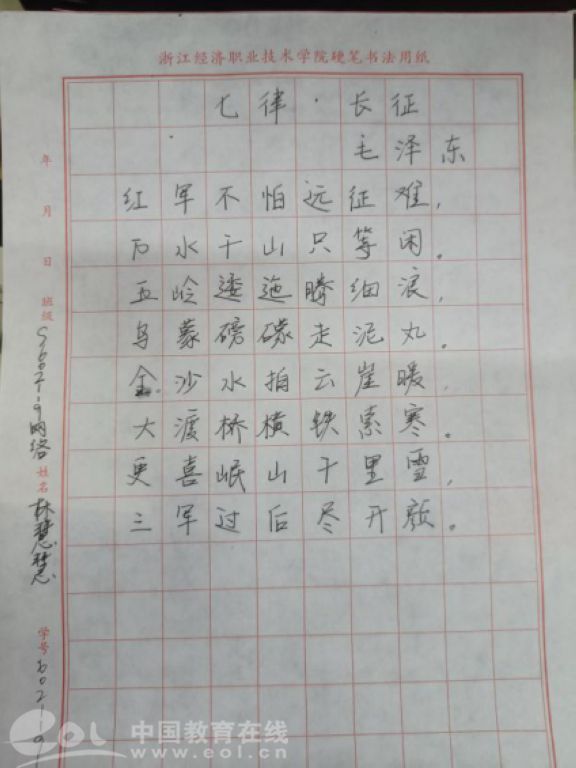 浙江经济职业技术学院硬笔书法用纸
七律·长征
毛泽东
红军不怕远征难，
万水千山只等闲。
五岭逶迤腾细浪，
乌蒙磅礴走泥丸。
金沙水拍云崖暖，
大渡桥横铁索寒。
更喜岷山千里雪，
三军过后尽开颜。
年 月 日 班级 网络 姓名 林慧慧 学号
eol 中国教育在线
www.eol.cn